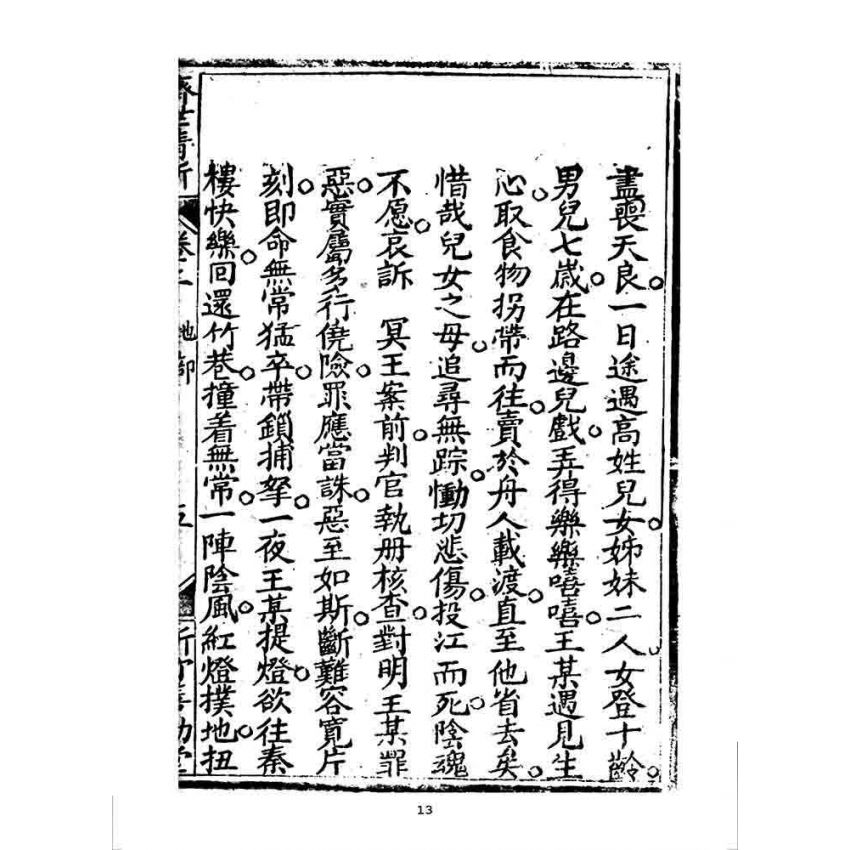 盡喪天良一日途遇高姓兒女姊妹二人女登十齡
男兒七歲在路邊兒戲弄得樂樂嘻嘻王某遇見生
心取食物拐帶而往賣於舟人載渡直至他省去矣
惜哉兒女之母追尋無踪慟切悲傷投江而死陰魂
不愿哀訴 冥王案前判官執册核查對明王某罪
惡實屬多行僥險罪應當誅惡至如斯斷難容寬片
刻即命無常猛卒帶鎖捕拏一夜王某提燈欲往秦
樓快樂回還竹巷撞着無常一陣陰風紅燈撲地扭
卷二 地部 五
13